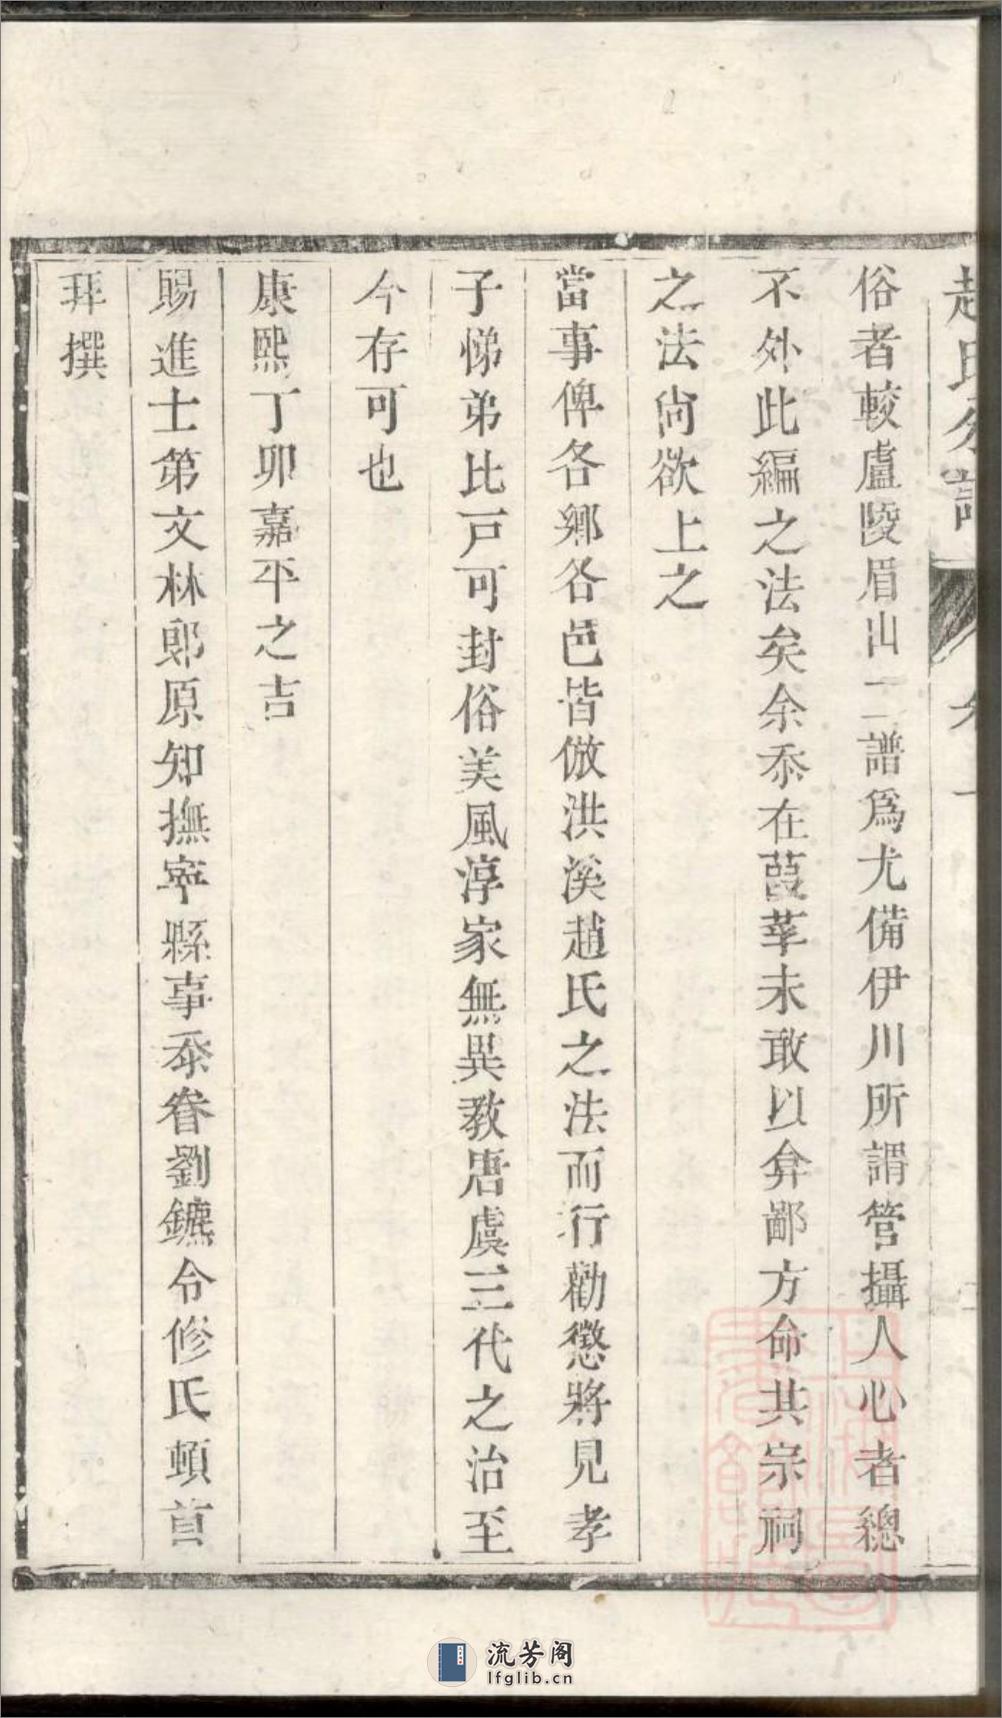 俗者較盧陵眉山二譜爲尤備伊川所謂管攝人心者總
不外此編之法矣余忝在葭莩未敢以弇鄙方命其宗祠
之法尚欲上之
當事俾各鄉各邑皆倣洪溪趙氏之法而行勸懲將見孝
子悌弟比戸可封俗美風淳家無異教唐虞三代之治至
今存可也
康熙丁卯嘉平之吉
賜進士第文林郎原知撫寧縣事忝眷劉鑣令修氏頓首
拜撰
流芳阁
lfglib.cn